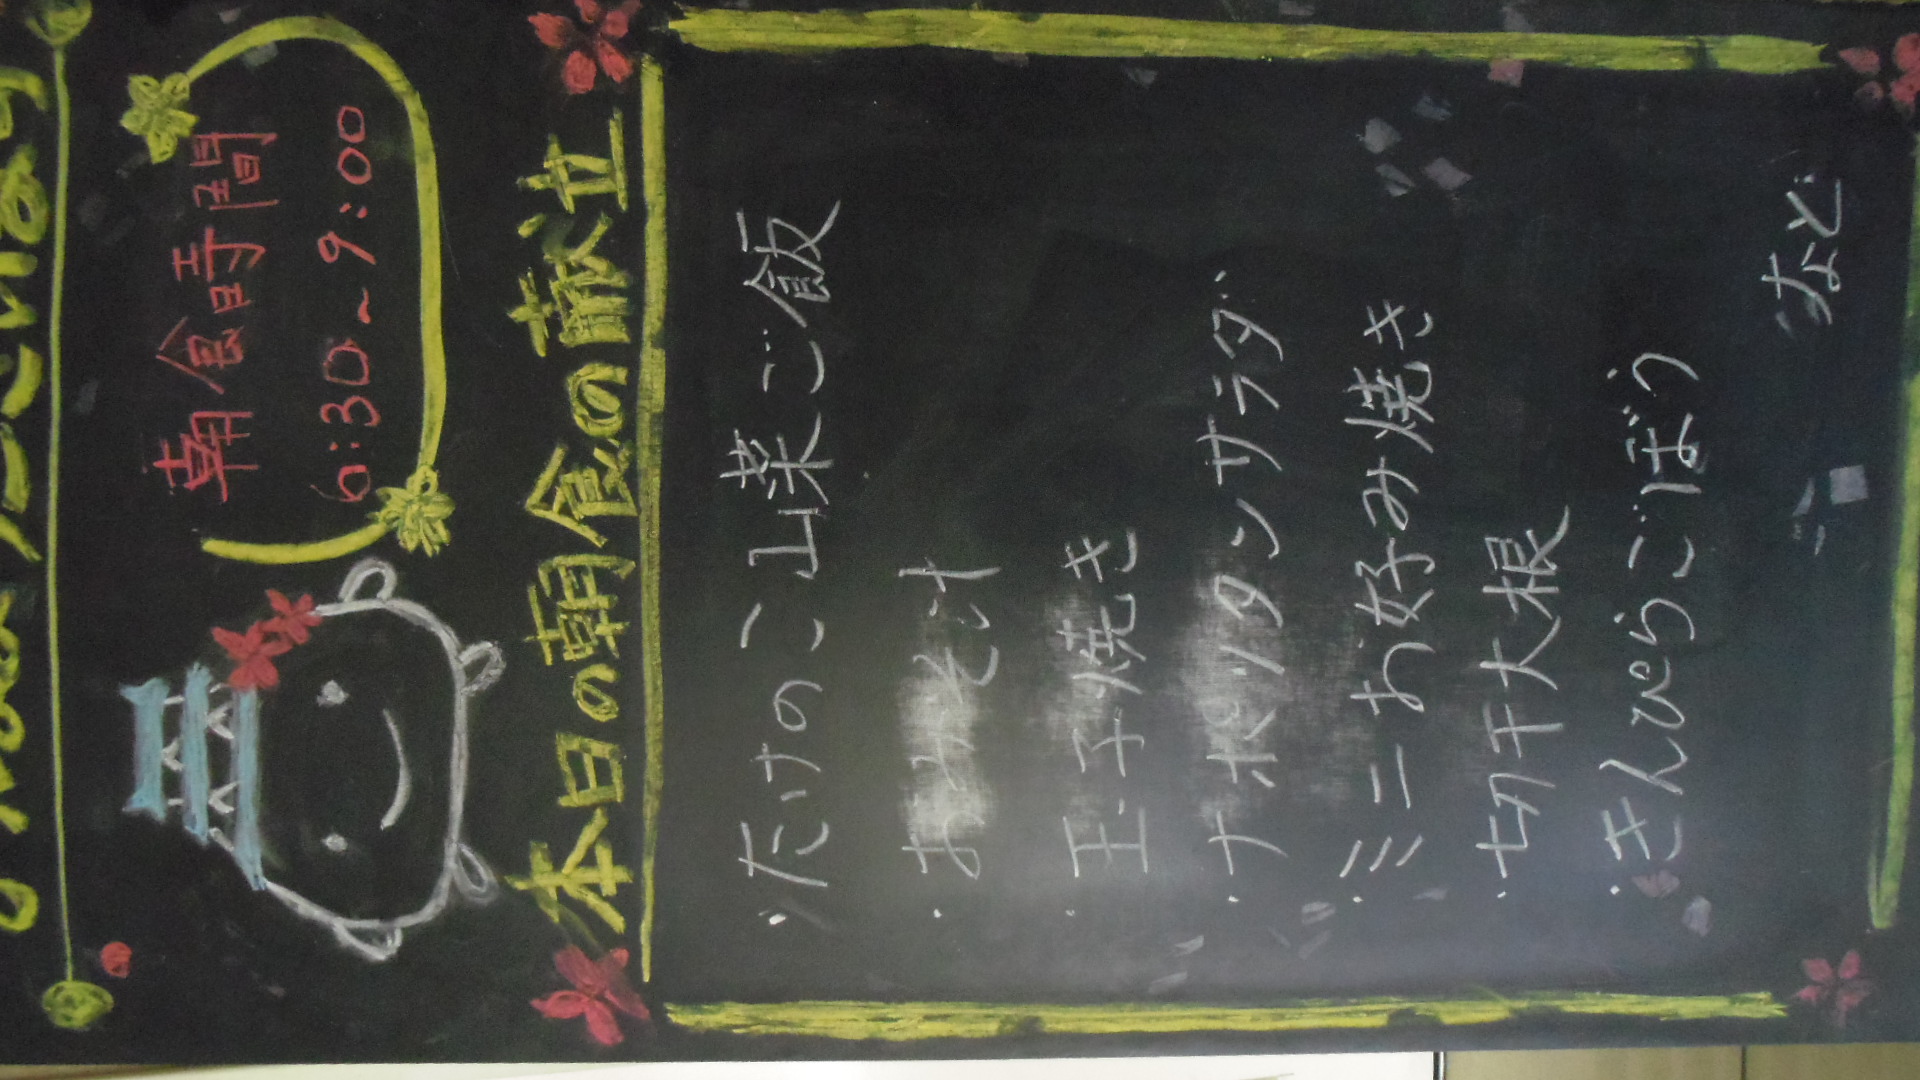 朝食時間
6:30~9:00
本日の朝食の献立
・たけのこ山菜ご飯
・おみそ汁
・玉子焼き
・ナポリタンサラダ
・ミニお好み焼き
・切干大根
・きんぴらごぼう
など